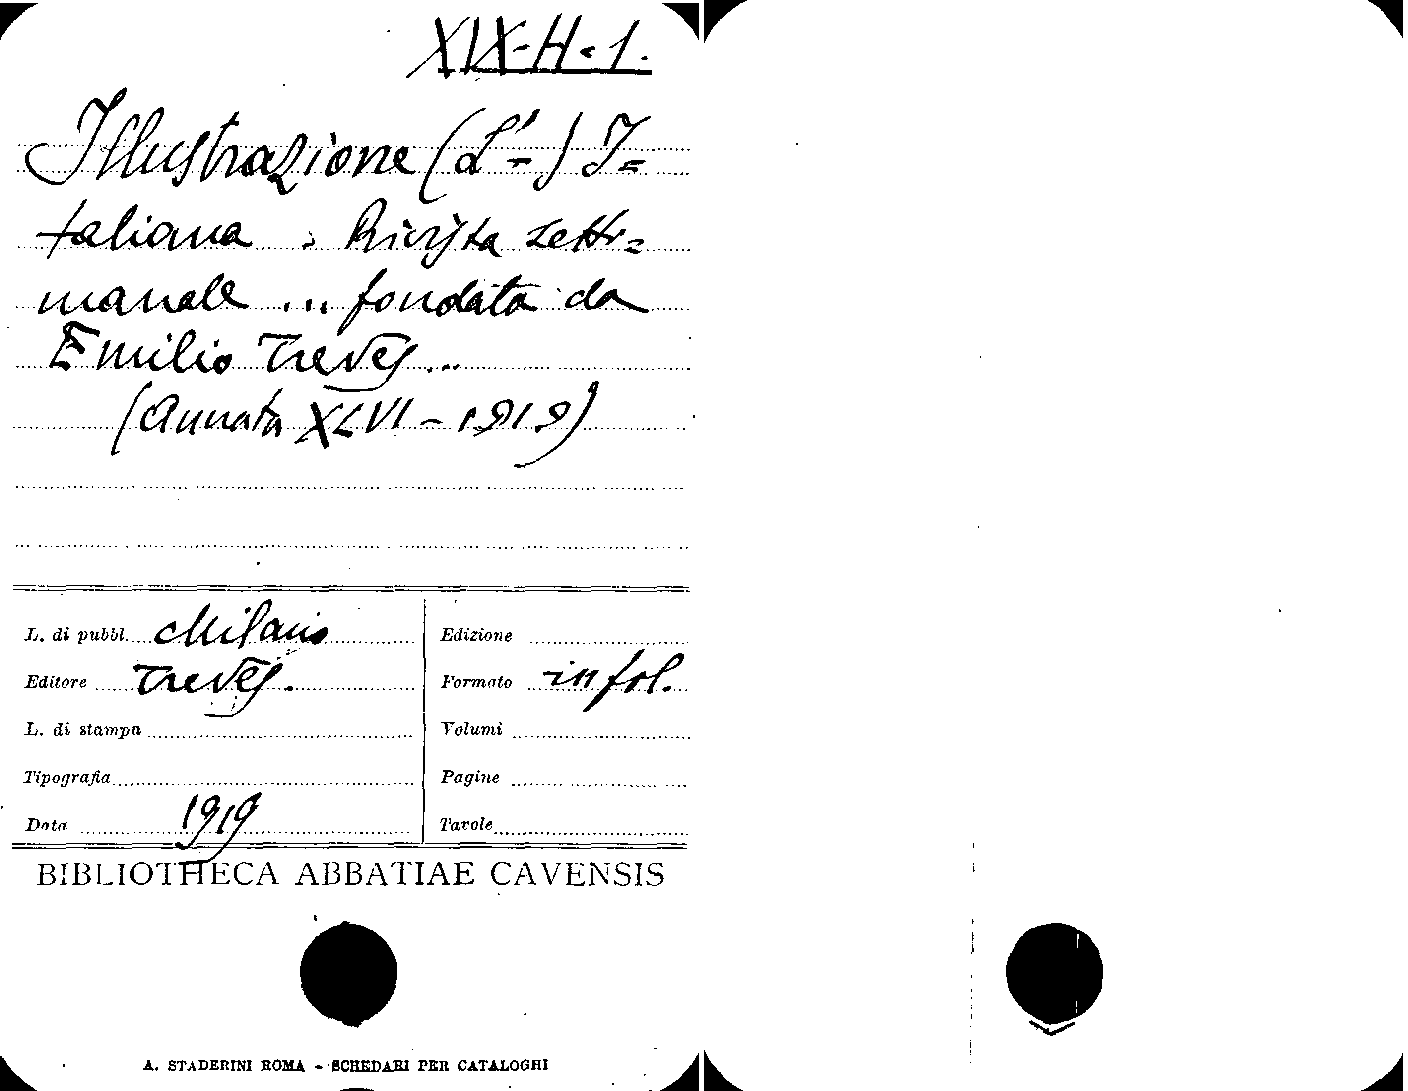 XIX-H-1.
Illustrazione (L'-) I=
taliana. Rivista setti=
manale ... fondata da
Emilio Treves ...
(Annata XLVI - 1919)
L. di pubbl. Milano
Editore Treves.
L. di stampa
Tipografia
Data 1919
Edizione
Formato in fol.
Volumi
Pagine
Tavole
BIBLIOTHECA ABBATIAE CAVENSIS
A. STADERINI ROMA - SCHEDARI PER CATALOGHI